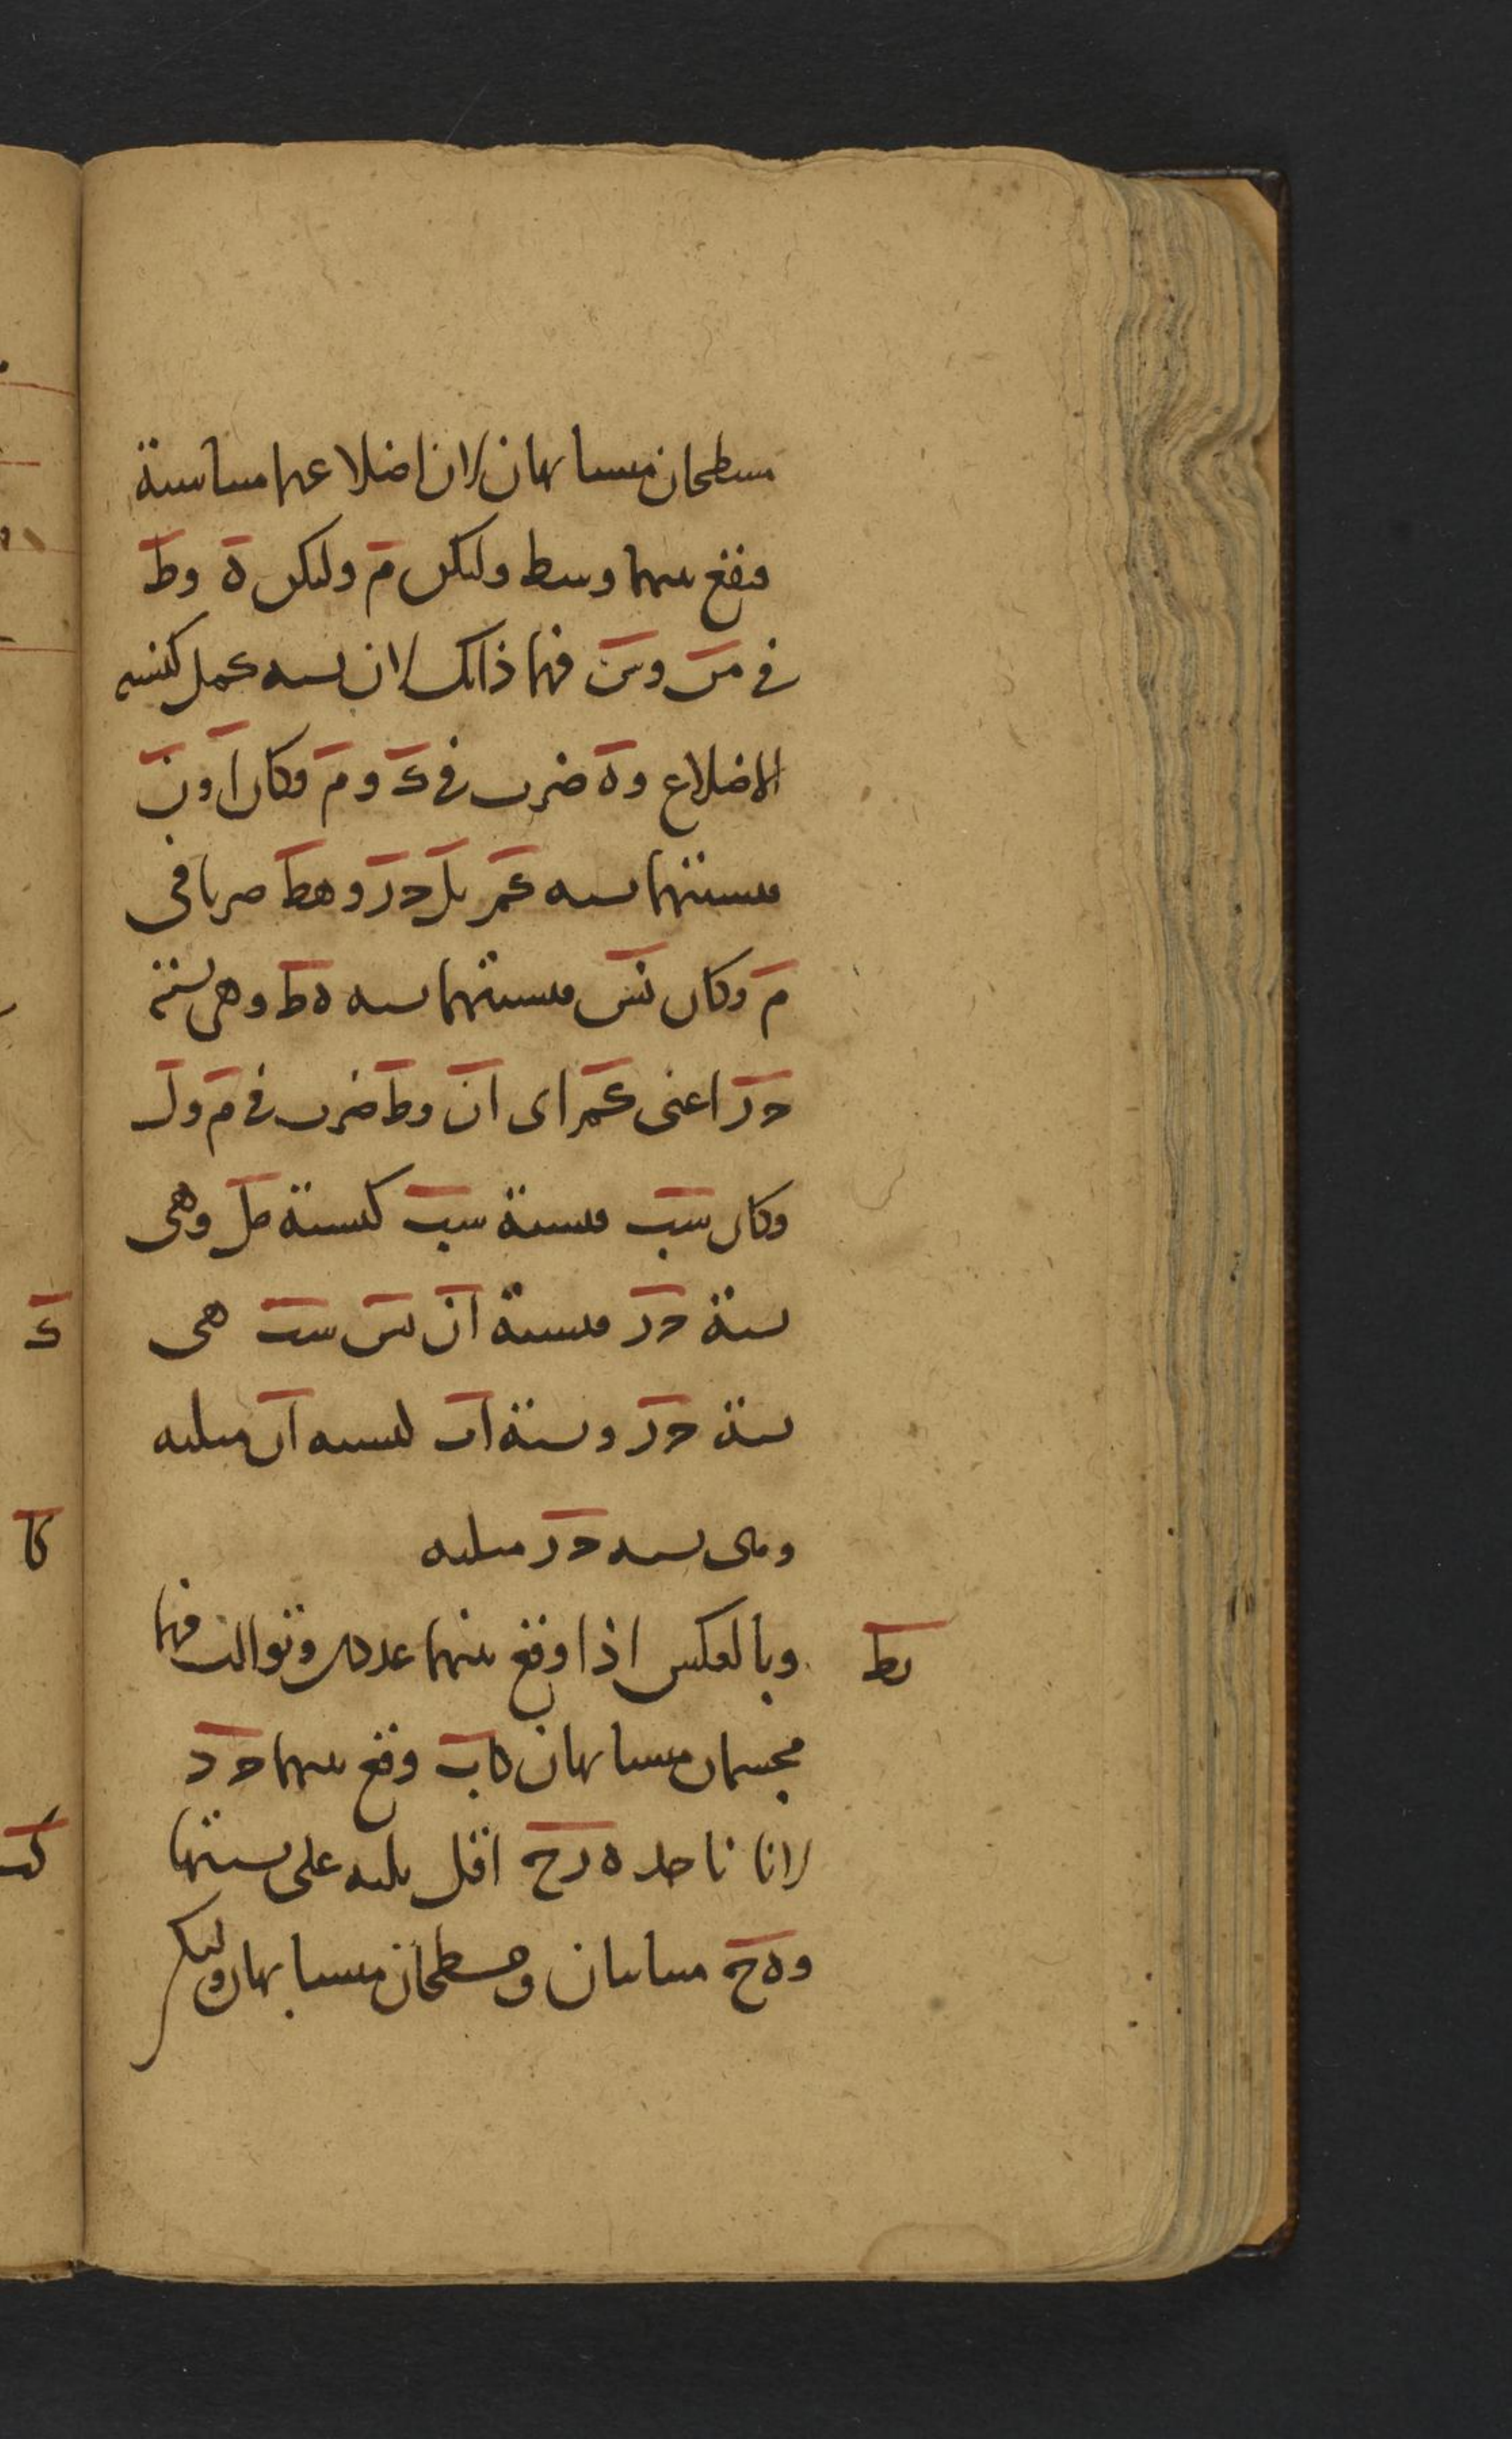 مسطحان متشابهان لان اضلاعهما متناسبة
فيقع بينهما وسط وليكن م وليكن ه وط
في م ن وس فهما ذالك لان نسبه كم ل كنسبه
الاضلاع و ه ضرب في ك و م فكان ا و ن
فنسبتهما نسبه كم بل حر و هط ضربا في
م وكان ن س فنسبتهما نسبه ه ط وهي نسبة
د ر اعنى كم اى ان وط ضرب في م و ل
وكان س ب فنسبة س ب كنسبة م ل وهى
نسبة د ر فنسبة ا ن ن س س ب هى
نسبة د ر ونسبة ا ب لنسبه ا ن مثلثه
وهى نسبه د ر مثلثه
يط وبالعكس اذا وقع بينهما عددان وتوالت فهما
مجسمان متشابهان كاب وقع بينهما ح د
لانا ناخذ ه ر ح اقل ثلثه على نسبتها
و ه ح متباينان ومسطحان متشابهان وليكن
ك
كا
كب